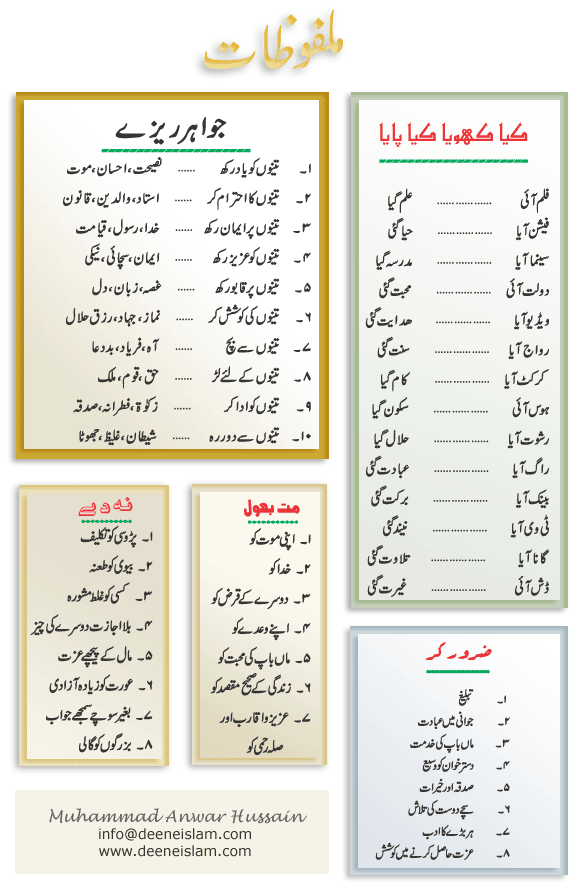 ملفوظات
جواہر ریزے
۱۔ تینوں کو یاد رکھ ...... نصیحت، احسان، موت
۲۔ تینوں کا احترام کر ...... استاد، والدین، قانون
۳۔ تینوں پر ایمان رکھ ...... خدا، رسول، قیامت
۴۔ تینوں کو عزیز رکھ ...... ایمان، سچائی، نیکی
۵۔ تینوں پر قابو رکھ ...... غصہ، زبان، دل
۶۔ تینوں کی کوشش کر ...... نماز، جہاد، رزق حلال
۷۔ تینوں سے بچ ...... آہ، فریاد، بددعا
۸۔ تینوں کے لئے لڑ ...... حق، قوم، ملک
۹۔ تینوں کو ادا کر ...... زکوٰۃ، فطرانہ، صدقہ
۱۰۔ تینوں سے دور رہ ...... شیطان، غلیظ، جھوٹا
کیا کھویا کیا پایا
فلم آئی ................ علم گیا
فیشن آیا ................ حیا گئی
سینما آیا ................ مدرسہ گیا
دولت آئی ................ محبت گئی
ویڈیو آیا ................ ھدایت گئی
رواج آیا ................ سنت گئی
کرکٹ آیا ................ کام گیا
ہوس آئی ................ سکون گیا
رشوت آیا ................ حلال گیا
راگ آیا ................ عبادت گئی
بینک آیا ................ برکت گئی
ٹی وی آیا ................ نیند گئی
گانا آیا ................ تلاوت گئی
ڈش آئی ................ غیرت گئی
مت بھول
۱۔ اپنی موت کو
۲۔ خدا کو
۳۔ دوسرے کے قرض کو
۴۔ اپنے وعدے کو
۵۔ ماں باپ کی محبت کو
۶۔ زندگی کے صحیح مقصد کو
۷۔ عزیز و اقارب اور
صلہ رحمی کو
نہ دیے
۱۔ پڑوسی کو تکلیف
۲۔ بیوی کو طعنہ
۳۔ کسی کو غلط مشورہ
۴۔ بلا اجازت دوسرے کی چیز
۵۔ مال کے پیچھے عزت
۶۔ عورت کو زیادہ آزادی
۷۔ بغیر سوچے سمجھے جواب
۸۔ بزرگوں کو گالی
ضرور کر
۱۔ تبلیغ
۲۔ جوانی میں عبادت
۳۔ ماں باپ کی خدمت
۴۔ دستر خوان کو وسیع
۵۔ صدقہ اور خیرات
۶۔ سچے دوست کی تلاش
۷۔ ہر بڑے کا ادب
۸۔ عزت حاصل کرنے میں کوشش
Muhammad Anwar Hussain
info@deeneislam.com
www.deeneislam.com